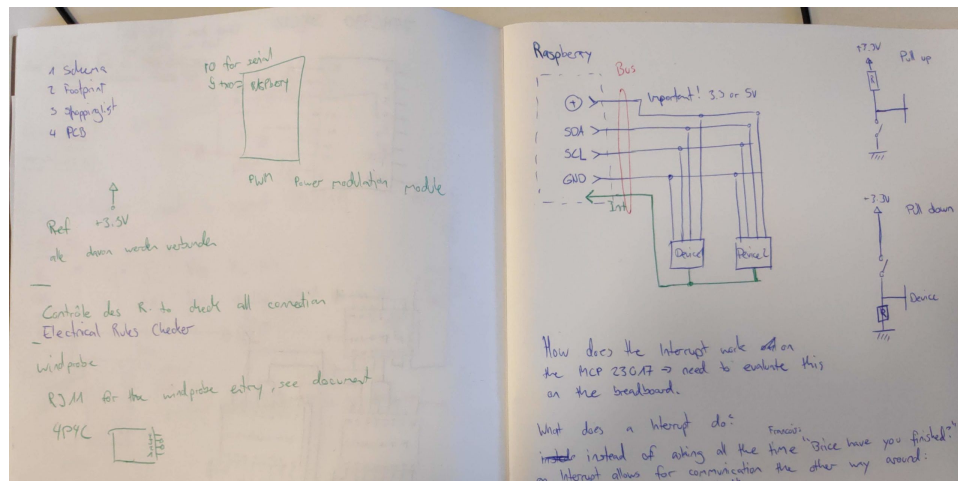 1 Schema
2 Footprint
3 Shoppinglist
4 PCB
10 for serial
5 two=
Raspberry
PWM Power modulation module
Ref +3.5V
alle davon werden verbunden
Contrôle des R. to check all connection
Electrical Rules Checker
windprobe
RJ11 for the windprobe entry, see document
4P4C
Raspberry
Bus
+
Important! 3.3 or 5V
SDA
SCL
GND
Int
Device
Device
+3.3V
Pull up
R
-3.3V
Pull down
Device
R
How does the Interrupt work on
the MCP 23017 → need to evaluate this
on the breadboard.
What does a Interrupt do?
Francois:
instead of asking all the time "Brice have you finished?"
an Interrupt allows for communication the other way around: